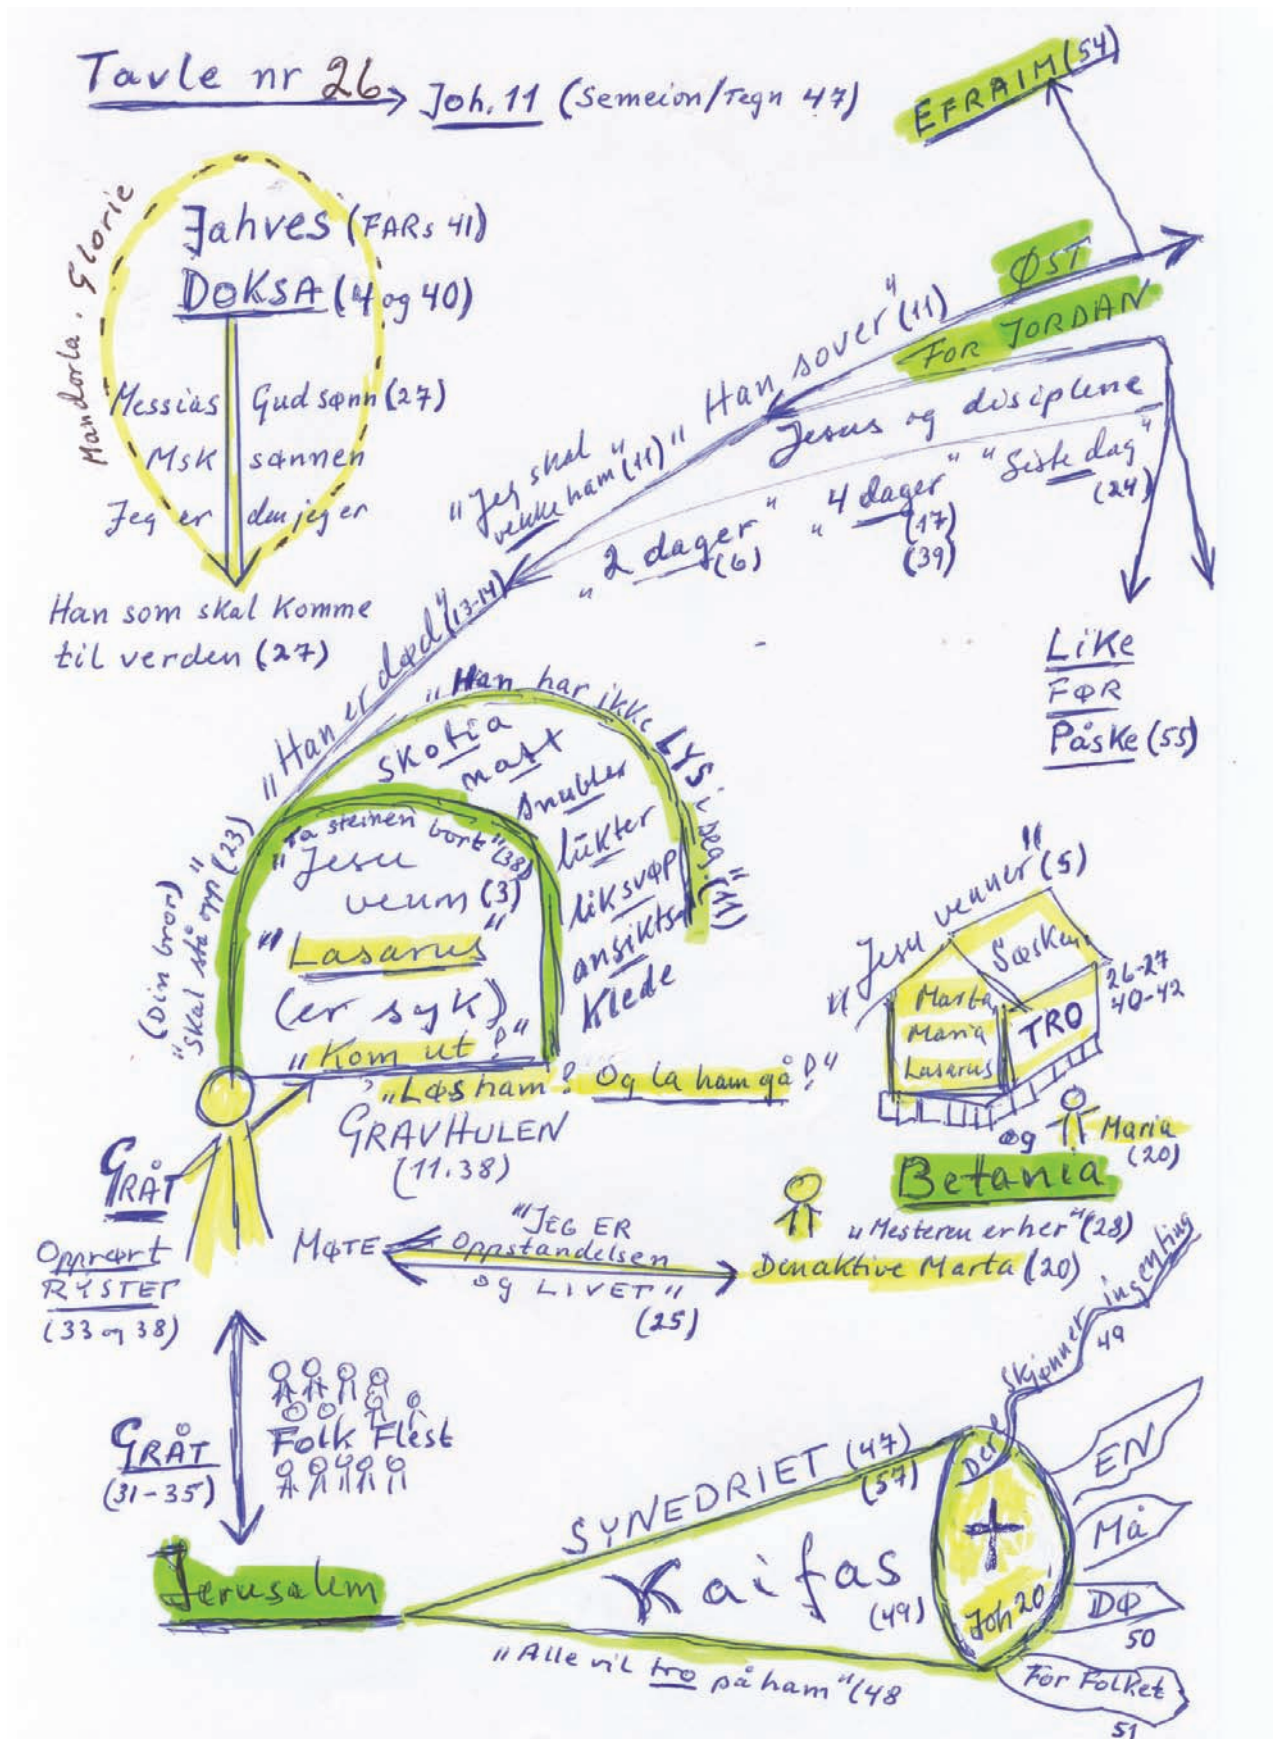 Tavle nr 26
Joh. 11 (Semeion/Tegn 47)
EFRAIM (54)
Mandorla. Glorie
Jahves (FARs 41)
DOKSA (4 og 40)
Messias Gud sønn (27)
Msk sønnen
Jeg er den jeg er
Han som skal komme
til verden (27)
ØST
FOR JORDAN
"Han sover" (11)
Jesus og disiplene
"Jeg skal
vekke ham (11)"
"2 dager"
(6)
"4 dager"
(17)
(39)
"Siste dag"
(24)
"Han er død" (13-14)
LIKE
FØR
Påske (55)
"Han har ikke LYS i seg." (11)
skotia
natt
snubler
lukter
liksvøp
ansikts
klede
(Din bror)
"skal stå opp" (23)
"Ta steinen bort" (38)
"Jesu
venn (3)
"Lasarus"
(er syk)
"Kom ut!"
"Løs ham! og la ham gå!"
GRAVHULEN
(11.38)
"Jesu venner" (5)
Søsken
Marta
Maria
Lasarus
TRO
26-27
40-42
og
Maria
(20)
Betania
"Mesteren er her" (28)
Den aktive Marta (20)
GRÅT
Opprørt
RYSTET
(33 og 38)
MØTE
"JEG ER
Oppstandelsen
og LIVET"
(25)
GRÅT
(31-35)
Folk Flest
Jerusalem
SYNEDRIET (47)
(57)
Kaifas
(49)
"Alle vil tro på ham" (48
Dere skjønner ingenting
49
Joh 20
EN
Må
DØ
50
For Folket
51